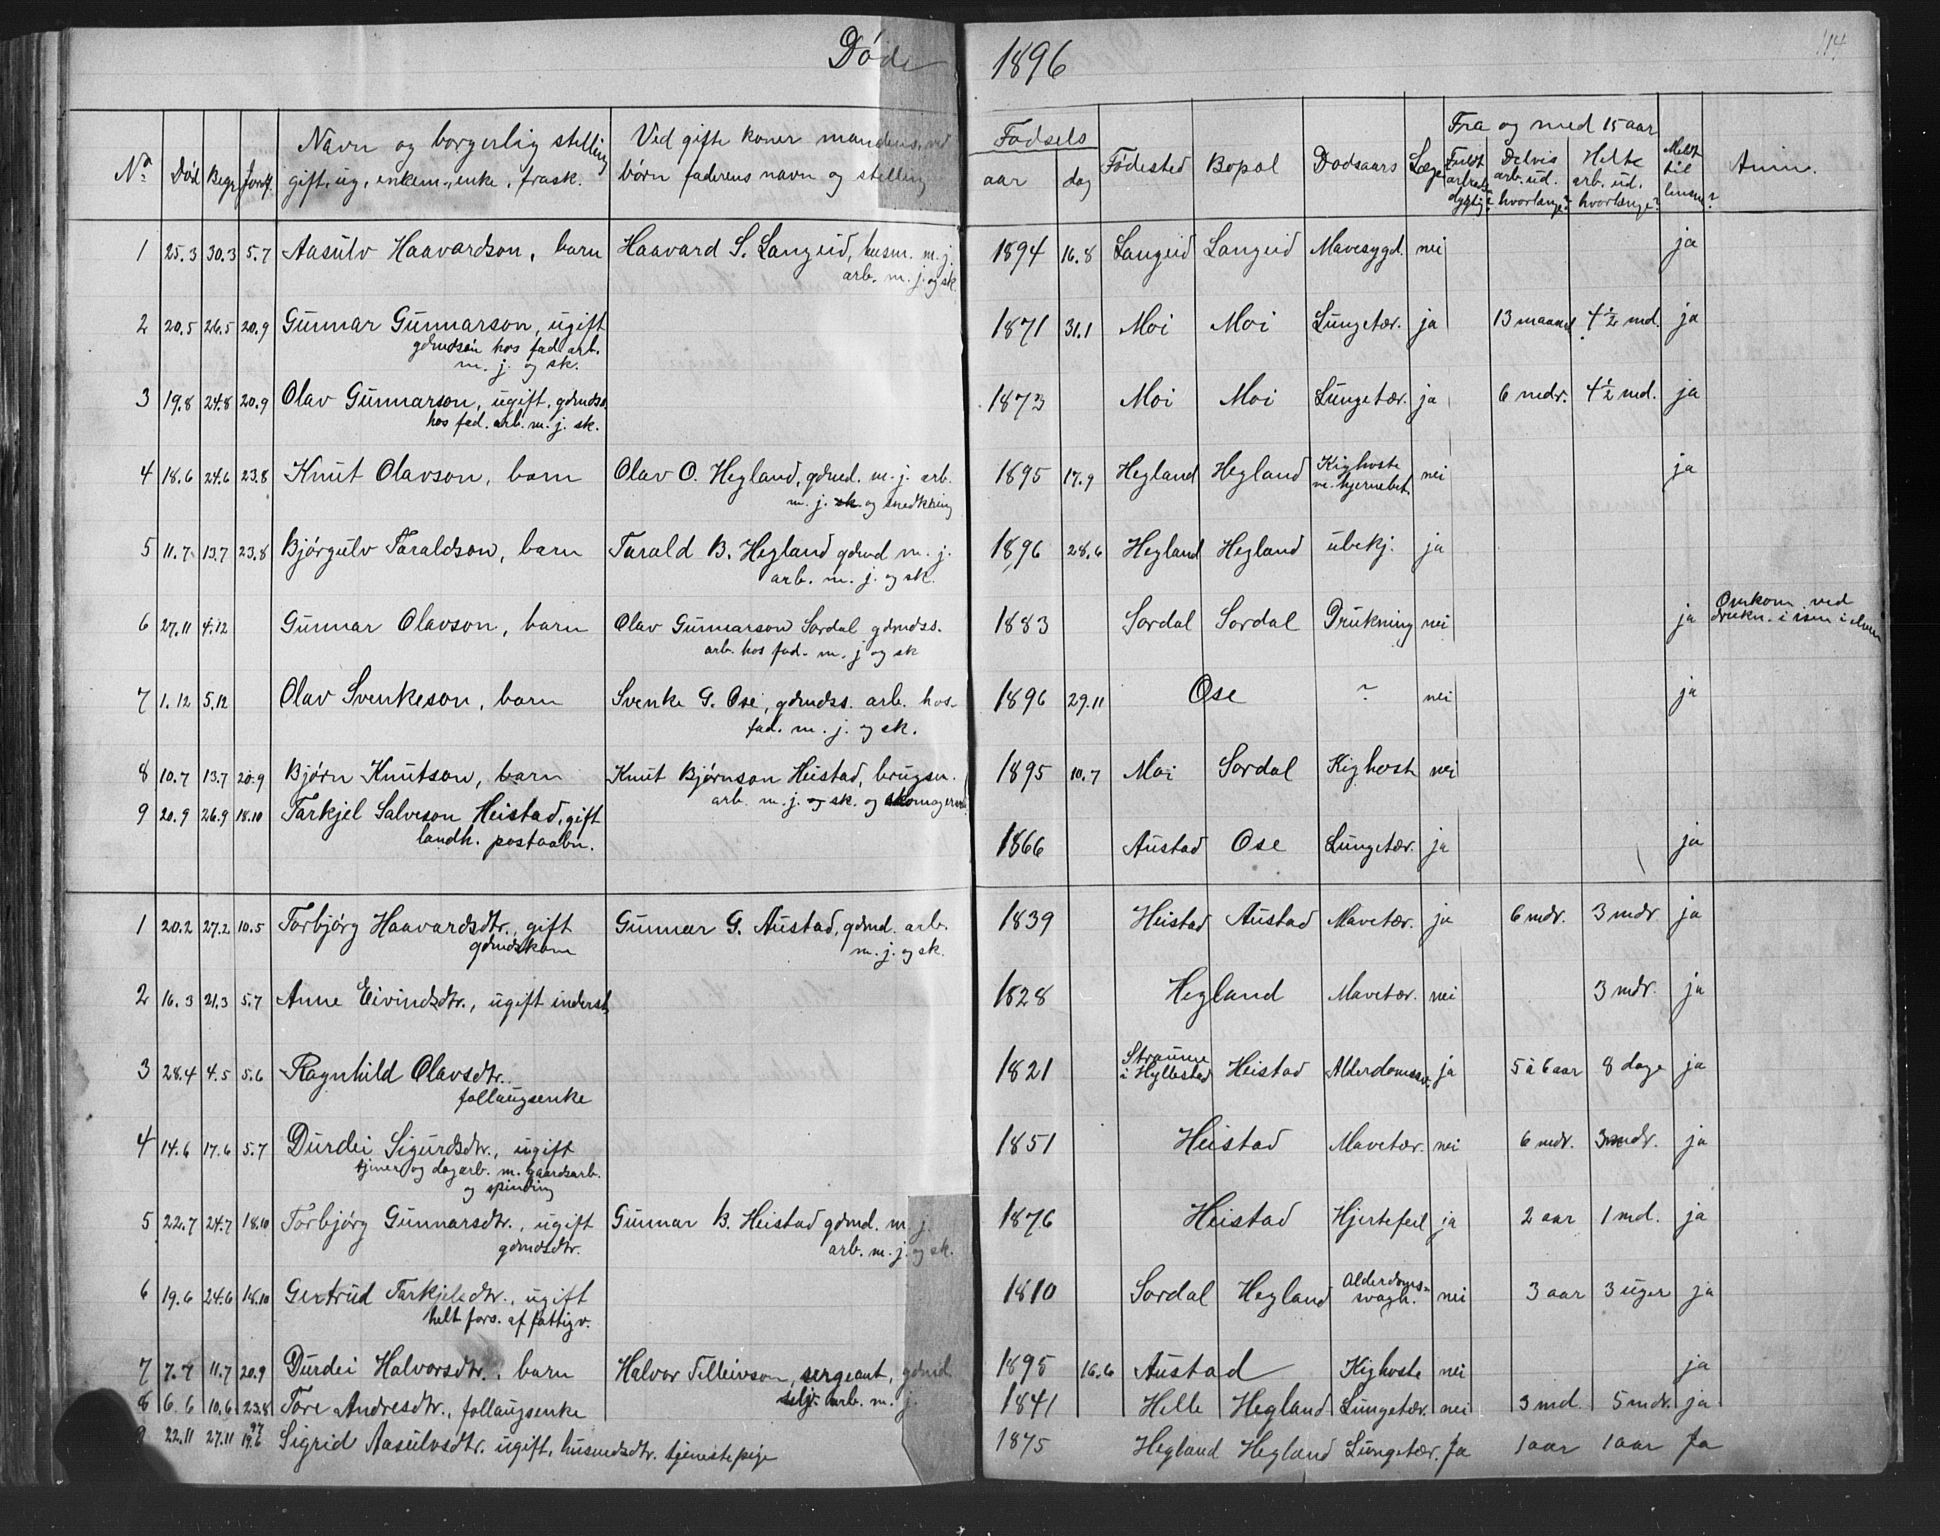 Døde 1896
114
No Død Begr. Jordf. Navn og borgerlig stilling gift, ug, enkem., enke, frask. Ved gifte koner mandens, ved børn faderens navn og stilling Fødsels aar dag Fødested Bopæl Dødsaars Læge Fra og med 15 aar Fuldt arbeidsdygtig? Delvis arb. ud. hvorlænge? Helte arb. ud. hvorlænge? Meldt til lensm? Anm.
1 25.3 30.3 5.7 Aasulv Haavardson, barn Haavard S. Langeid, husm. m. j. 1894 16.8 Langeid Langeid Mavesygd. nei ja
arb. m. j. og sk.
2 20.5 26.5 20.9 Gunnar Gunnarson, ugift 1871 31.1 Moi Moi Lungetær. ja 13 maaned 4½ md. ja
gdmdsøn hos fad. arb.
m. j. og sk.
3 19.8 24.8 20.9 Olav Gunnarson, ugift, gdmdss. 1873 Moi Moi Lungetær. ja 6 mdr. 4½ md. ja
hos fad. arb. m. j. sk.
4 18.6 24.6 23.8 Knut Olavson, barn Olav O. Hegland, gdmd. m. j. arb. 1895 17.9 Hegland Hegland Kighoste nei ja
m. j. sk. og snedkring m. hjernebet.
5 11.7 13.7 23.8 Bjørgulv Taraldson, barn Tarald B. Hegland gdmd m. j. 1896 28.6 Hegland Hegland ubekj. ja
arb. m. j. og sk.
6 27.11 4.12 Gunnar Olavson, barn Olav Gunnarson Sordal gdmdss. 1883 Sordal Sordal Drukning nei ja Omkom ved
arb. hos fad. m. j og sk drukn. i isen i elven
7 1.12 5.12 Olav Svenkeson, barn Svenke G. Ose, gdmdss. arb. hos 1896 29.11 Ose ? nei ja
fad. m. j. og sk.
8 10.7 13.7 20.9 Bjørn Knutson, barn Knut Bjørnson Heistad, brugsm. 1895 10.7 Moi Sordal Kighost nei
arb. m. j. og sk. og skomagerv.
9 20.9 26.9 18.10 Tarkjel Salveson Heistad, gift 1866 Austad Ose Lungetær. ja ja
landh. postaabn.
1 20.2 27.2 10.5 Torbjørg Haavardsdtr., gift Gunnar G. Austad, gdmd. arb. 1839 Heistad Austad Mavetær. ja 6 mdr. 3 mdr ja
gdmdskone m. j. og sk.
2 16.3 21.3 5.7 Anne Eivindsdtr., ugift inderst 1828 Hegland Mavetær. nei 3 mdr. ja
3 28.4 4.5 5.6 Ragnhild Olavsdtr. 1821 Straume i Hyllestad Heistad Alderdomssv. ja 5 à 6 aar 8 dage ja
follaugsenke
4 14.6 17.6 5.7 Durdei Sigurdsdtr., ugift 1851 Heistad Mavetær. nei 6 mdr. 3 mdr. ja
tjener og dagarb. m. gaardsarb.
og spinding
5 22.7 24.7 18.10 Torbjørg Gunnarsdtr., ugift Gunnar B. Heistad gdmd. m. j. 1876 Heistad Hjertefeil ja 2 aar 1 md. ja
gdmdsdtr. arb. m. j. og sk.
6 19.6 24.6 18.10 Gertrud Tarkjelsdtr., ugift 1810 Sordal Hegland Alderdoms- svagh. nei 3 aar 3 uger ja
helt fors. af fattigv.
7 7.7 11.7 20.9 Durdei Halvorsdtr., barn Halvor Telleivson, sergeant, gdmd. 1895 16.6 Austad Kighoste nei ja
selj. arb. m. j.
8 6.6 10.6 23.8 Tore Andresdtr., follaugsenke 1841 Helle Hegland Lungetær. nei 3 md. 5 mdr. ja
9 22.11 27.11 19.6 97 Sigrid Aasulvsdtr. ugift, husmdsdtr. tjenestepige 1875 Hegland Hegland Lungetær. Ja 1 aar 1 aar Ja